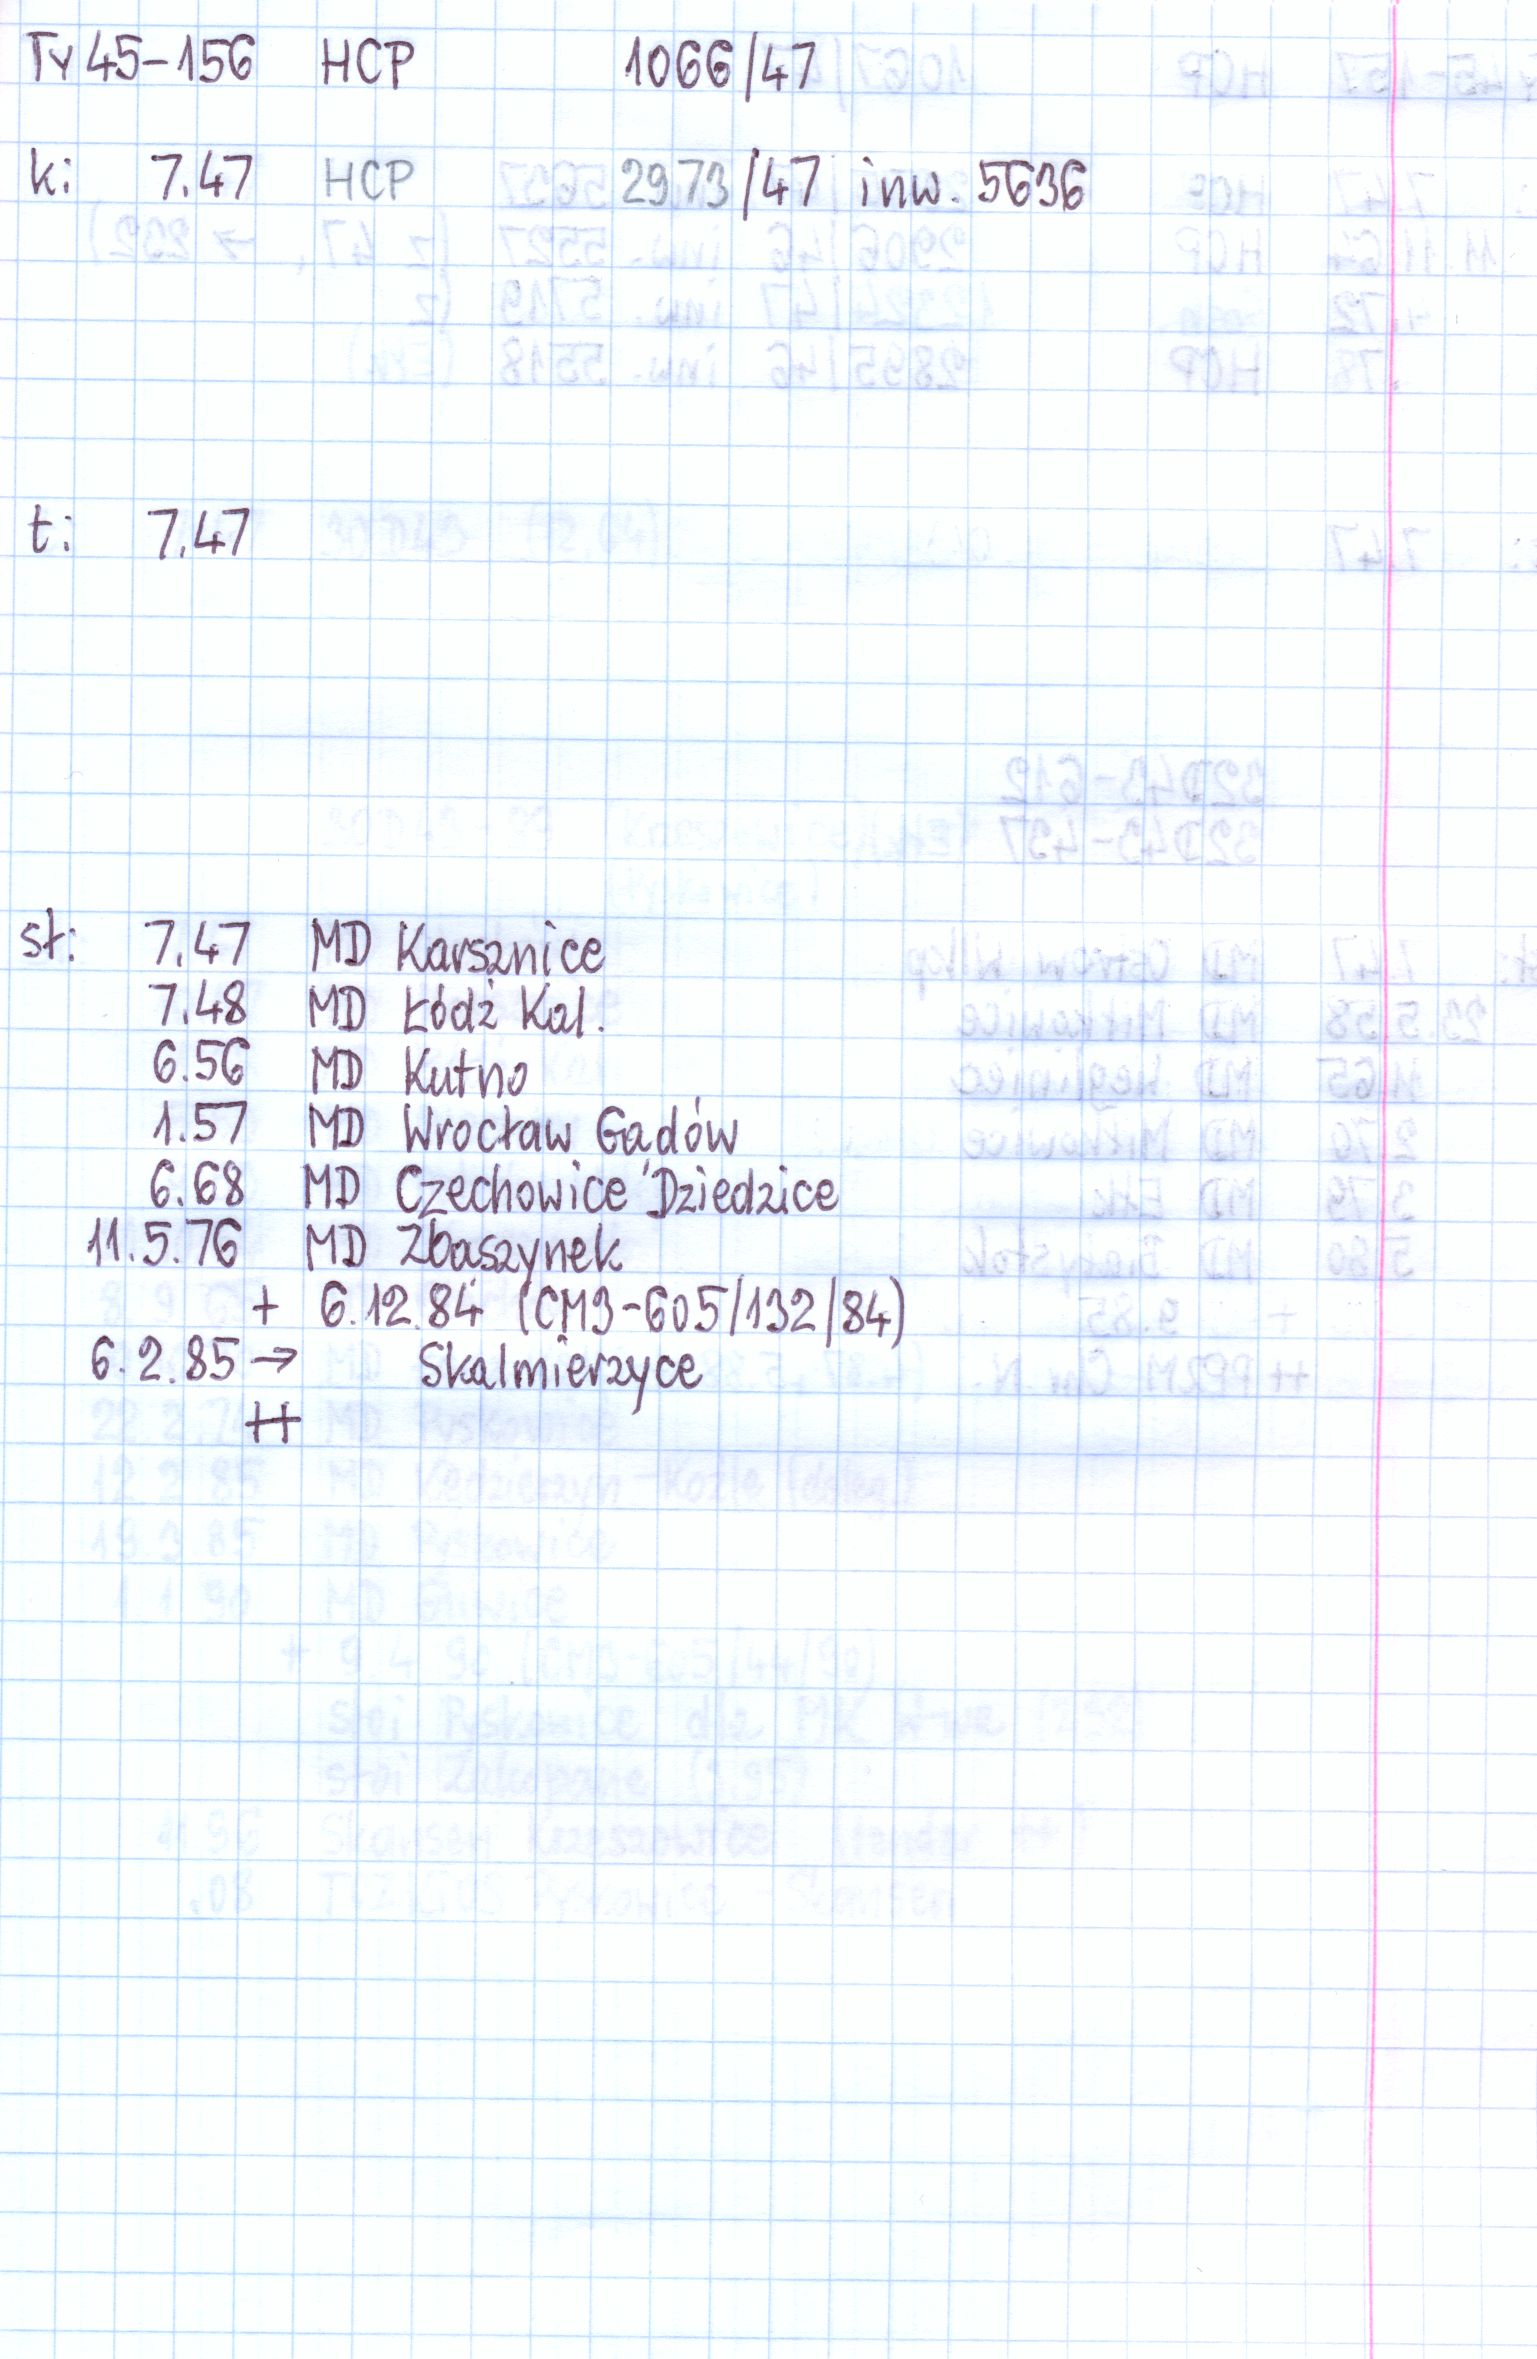 Ty45-156 HCP 1066/47
k: 7.47 HCP 2973/47 inw. 5636
t: 7.47
st: 7.47 MD Karsznice
7.48 MD Łódź Kal.
6.56 MD Kutno
1.57 MD Wrocław Gądów
6.68 MD Czechowice Dziedzice
11.5.76 MD Zbąszynek
+ 6.12.84 (CM3-605/132/84)
6.2.85 → Skalmierzyce
++